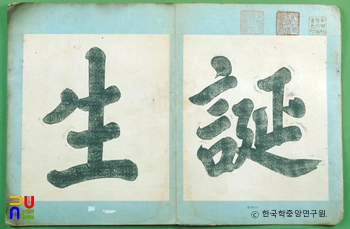 誕生
© 한국학중앙연구원